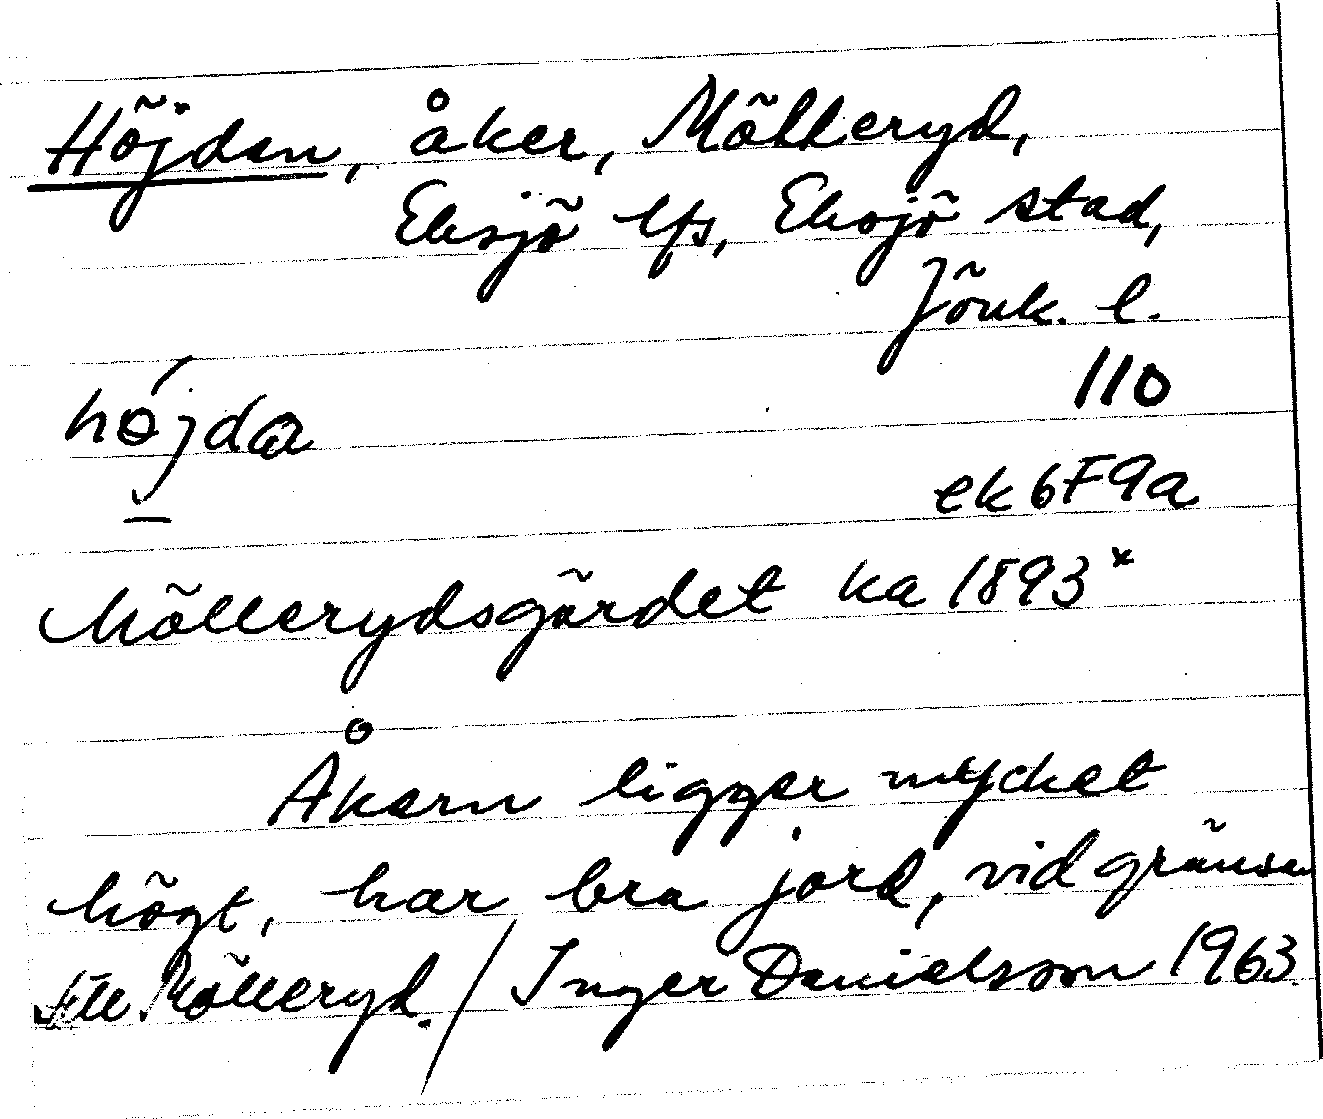 Höjden, åker, Mölleryd,
Eksjö lfs, Eksjö stad,
Jönk. l.
110
hǿjda
ek 6F9a
Möllerydsgärdet ka 1893 x
Åkern ligger mycket
högt, har bra jord, vid gränsen
till Mölleryd. / Inger Danielsson 1963